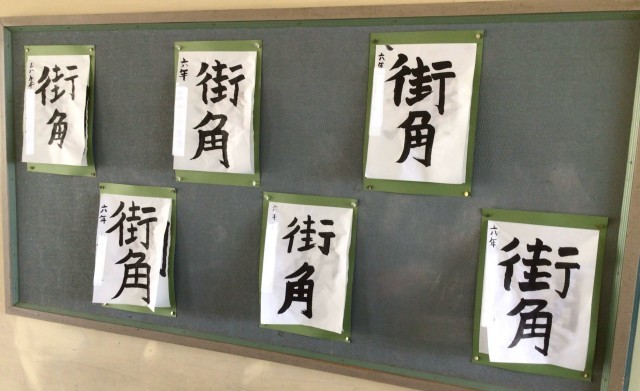 街角
六年
街角
六年
街角
六年
街角
六年
街角
街角
六年